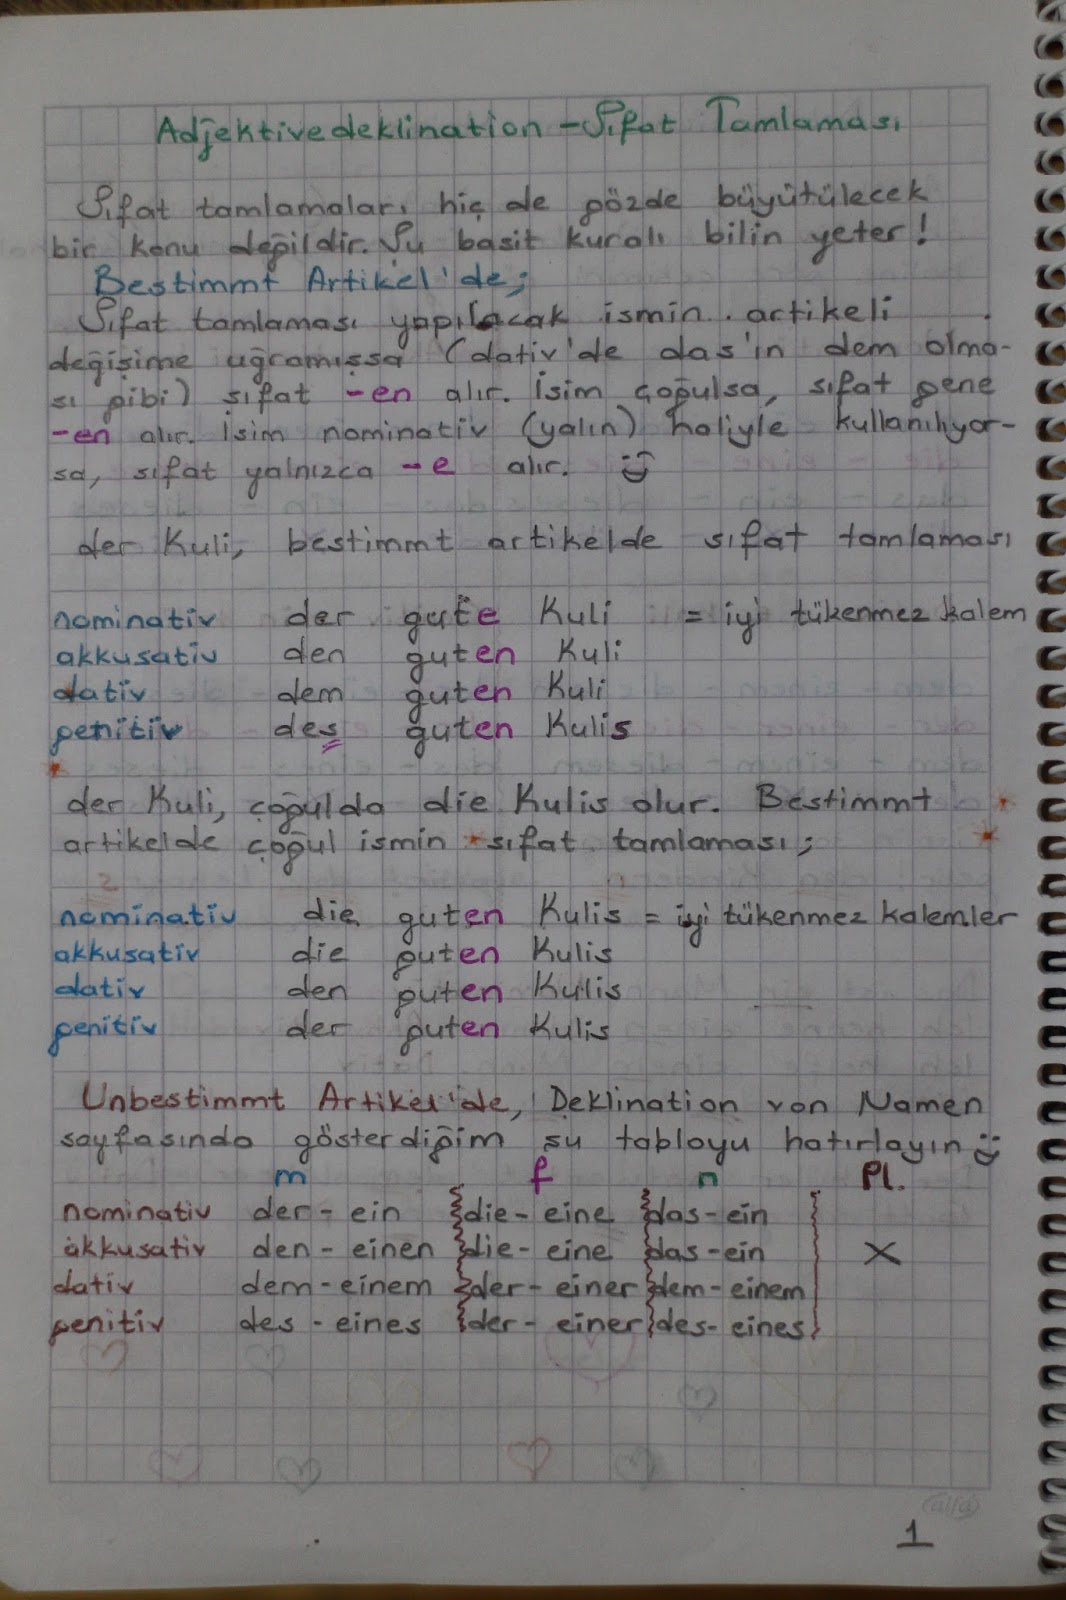 Adjektivedeklination - Sıfat Tamlaması
Sıfat tamlamaları hiç de gözde büyütülecek
bir konu değildir. Şu basit kuralı bilin yeter!
Bestimmt Artikel'de;
Sıfat tamlaması yapılacak ismin artikeli
değişime uğramışsa (dativ'de das'ın dem olma-
sı gibi) sıfat -en alır. İsim çoğulsa, sıfat gene
-en alır. İsim nominativ (yalın) haliyle kullanılıyor-
sa, sıfat yalnızca -e alır.
der Kuli, bestimmt artikelde sıfat tamlaması
nominativ der gute Kuli = iyi tükenmez kalem
akkusativ den guten Kuli
dativ dem guten Kuli
genitiv des guten Kulis
der Kuli, çoğulda die Kulis olur. Bestimmt
artikelde çoğul ismin sıfat tamlaması;
nominativ die guten Kulis = iyi tükenmez kalemler
akkusativ die guten Kulis
dativ den guten Kulis
genitiv der guten Kulis
Unbestimmt Artikel'de, Deklination von Namen
sayfasında gösterdiğim şu tabloyu hatırlayın
m f n Pl.
nominativ der - ein die - eine das - ein
akkusativ den - einen die - eine das - ein X
dativ dem - einem der - einer dem - einem
genitiv des - eines der - einer des - eines
1